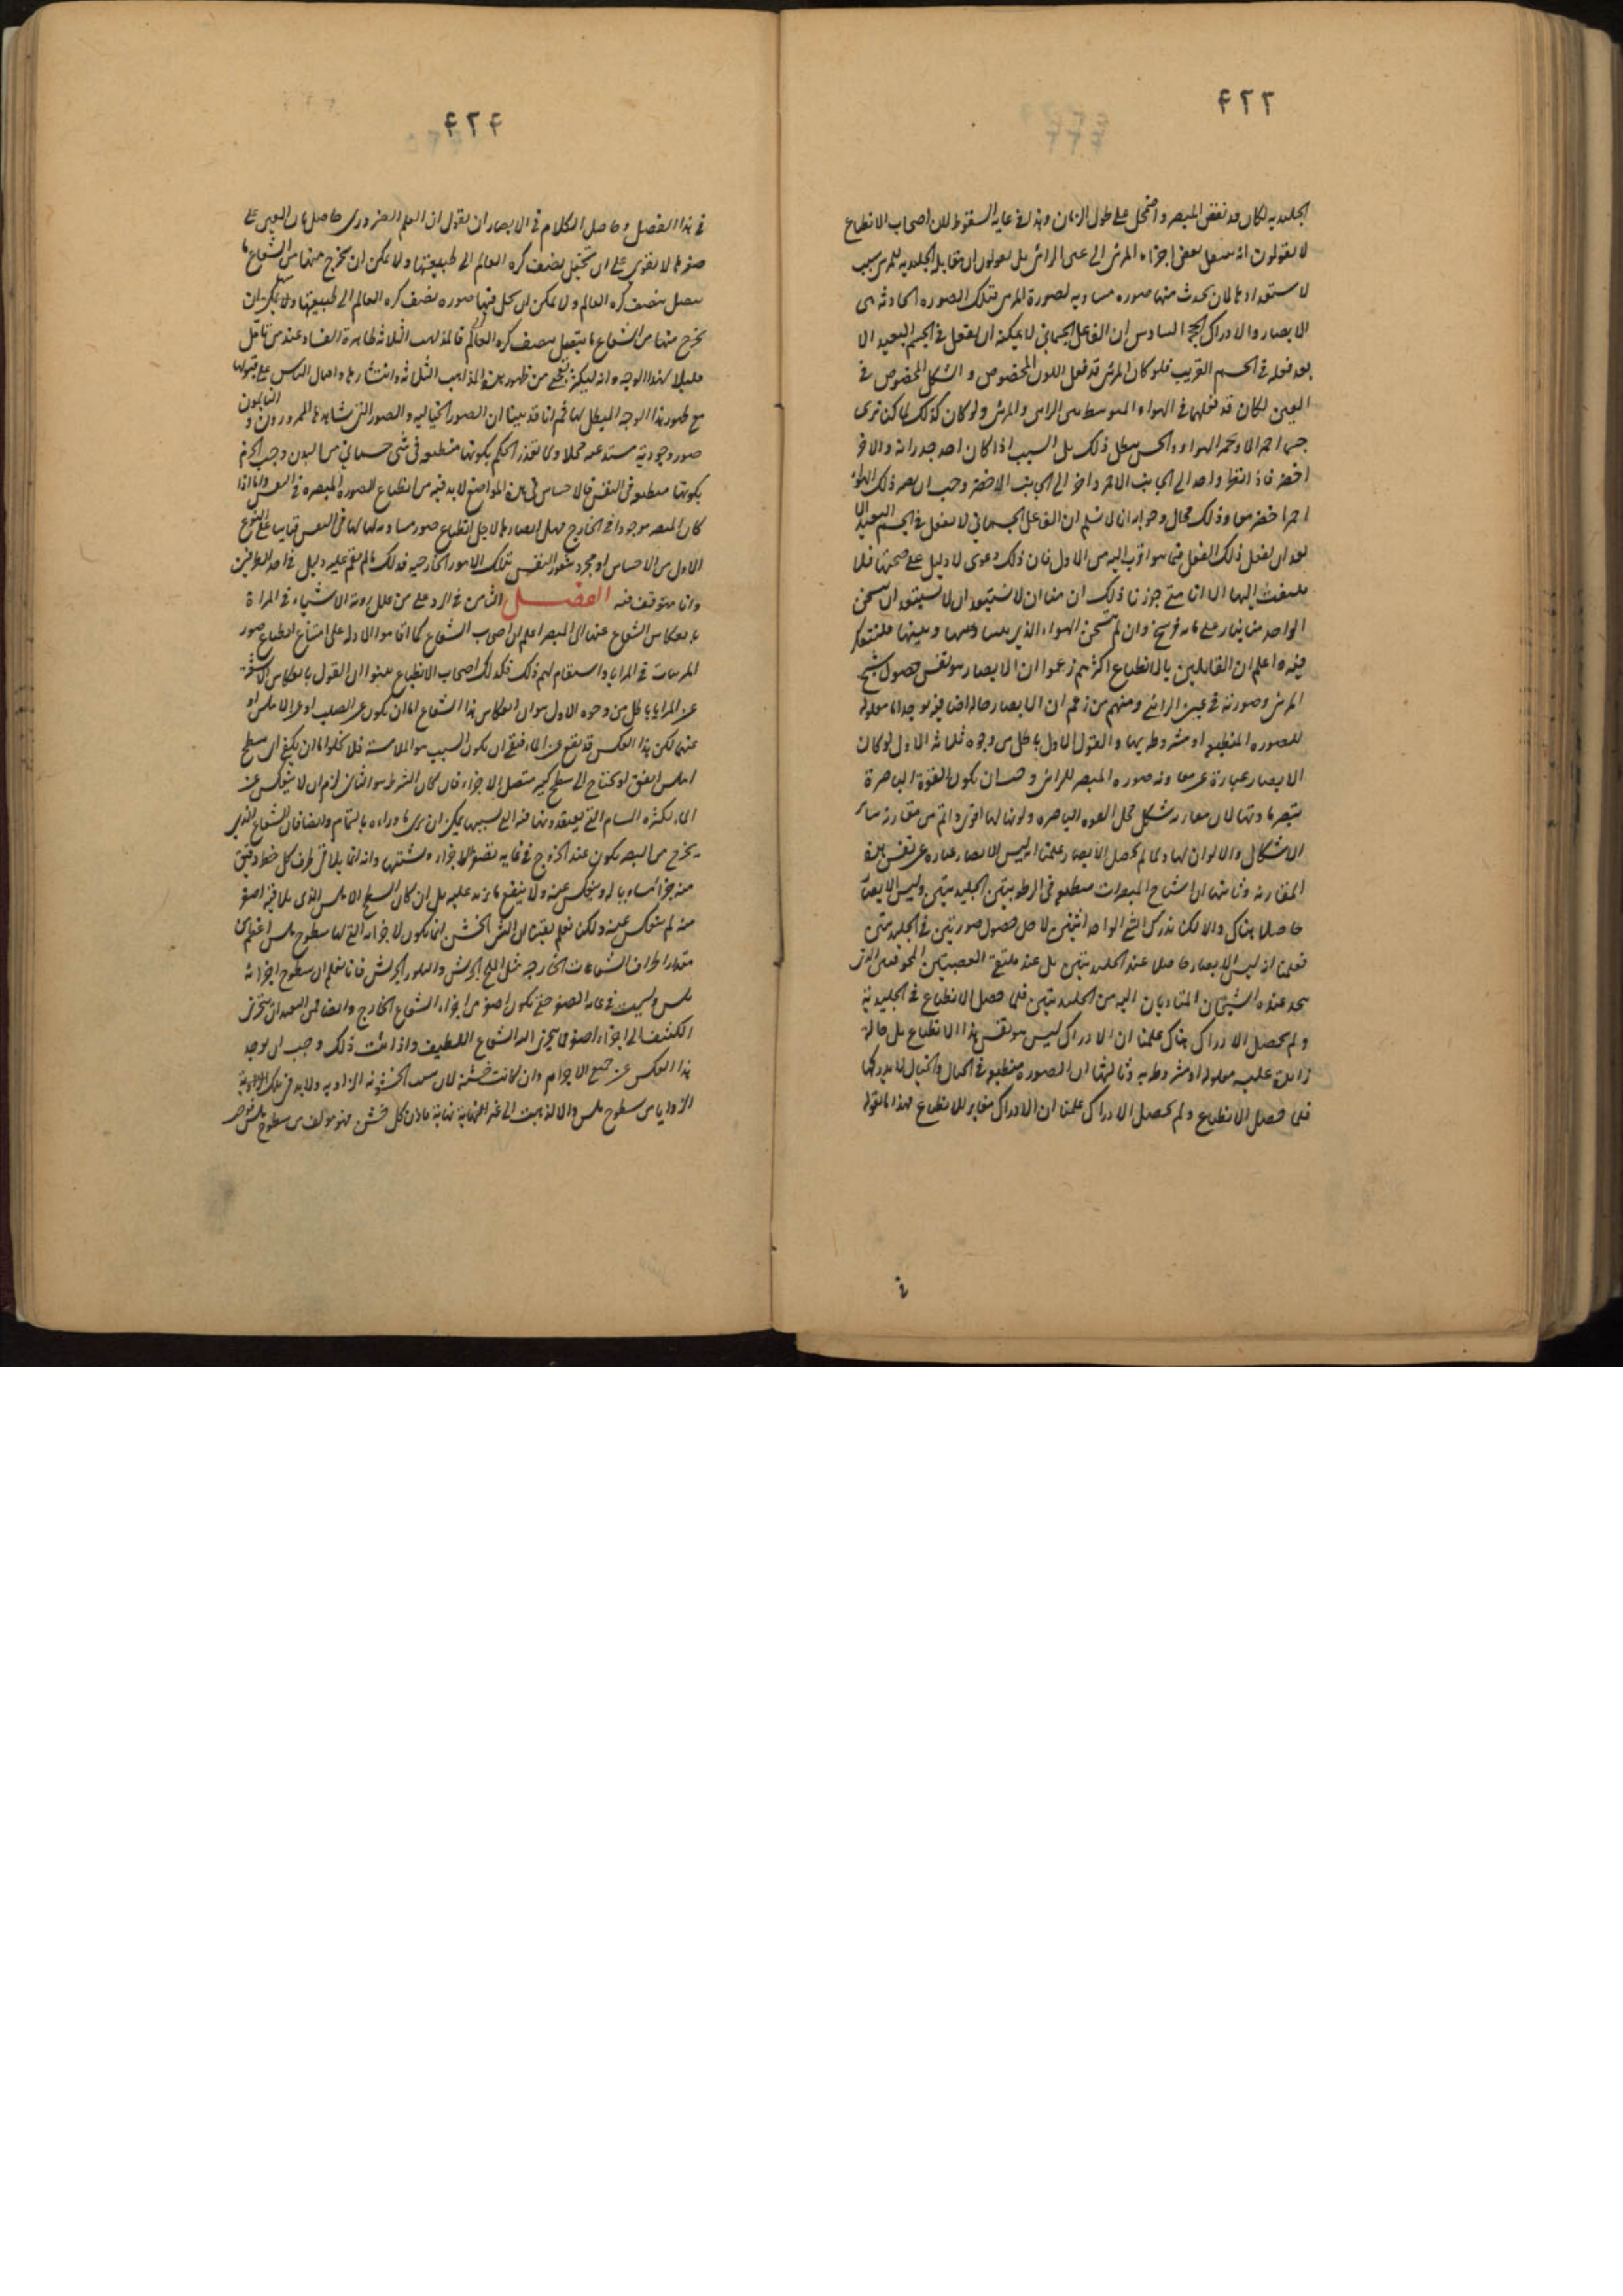 ٤٢٢
الجليديه لكان قد نقص المبصر واضمحل على طول الزمان وهذا فى غاية السقوط لان اصحاب الانطباع
لا يقولون انه ينتقل بعض اجزاء المرئى الى عين الرائى بل يقولون ان مقابلة الجليديه للمرئى سبب
لاستعدادها لان يحدث منها صوره مساويه لصورة المرئى فتلك الصوره الحادثه هى
الابصار والادراك الحجة السادس ان الفاعل الجسمانى لا يمكنه ان يفعل فى الجسم البعيد الا
بعد فعله فى الجسم القريب فلو كان المرئى قد فعل اللون المخصوص و الشكل المخصوص فى
العين لكان قد فعلهما فى الهواء المتوسط بين الرائى والمرئى ولو كان كذلك لما كنا نرى
جسما احمر الا و نحمر الهواء و الحس يبطل ذلك بل السبب اذا كان احد جدرانه و الاخر
اخضر فاذا نظر واحد الى الجانب الاحمر و اخر الى الجانب الاخضر وجب ان يصير ذلك الهواء
احمر اخضر معا و ذلك محال و جوابه انا لا نسلم ان الفاعل الجسمانى لا يفعل فى الجسم البعيد الا
بعد ان يفعل ذلك الفعل فيما هو اقرب اليه من الاول فان ذلك دعوى لا دليل على صحتها فلا
يلتفت اليها الا انا متى جوزنا ذلك ان منا ان لا نستبعد ان لا نستبعد ان يسخن
الواحد منا بنار على مائه فرسخ وان لم يتسخن الهواء الذى بيننا وبينها فلنتفكر
فيه اعلم ان القائلين بالانطباع اكثرهم زعموا ان الابصار هو نفس حصول شبح
المرئى وصورته فى عين الرائى ومنهم من زعم ان الابصار حاله اضافيه توجد اما معلوله
للصوره المنطبعه او مشروطه بها و القول الاول باطل من وجوه ثلاثه الاول لو كان
الابصار عبارة عن مقارنه صوره المبصر للرائى وجب ان يكون القوة الباصرة
تبصر ما وتها لان مقارنه شكل محل القوه الباصره و لونها لها اقوى و اتم من مقارنه سائر
الاشكال والالوان لها و لما لم يحصل الابصار علمنا انه ليس الابصار عباره عن نفس هذه
المقارنه وثانيها ان اشباح المبصرات منطبعه فى الرطوبتين الجليديتين وليس الابصار
حاصلا هناك و الا لكنا ندرك الشئ الواحد اثنين لاجل حصول صورتين فى الجليديتين
فعلمنا انه ليس الابصار حاصلا عند الجليديتين بل عند ملتقى العصبتين المجوفتين الذى
يتحد عنده الشبحان المتاديان اليه من الجليديتين فلما حصل الانطباع فى الجليدية
ولم يحصل الادراك هناك علمنا ان الادراك ليس هو نفس هذا الانطباع بل حالة
زائدة عليه معلوله او مشروطه به وثالثها ان الصوره منطبعه فى الخيال و الخيال لا يدركها
فلما حصل الانطباع و لم يحصل الادراك علمنا ان الادراك مغاير للانطباع فهذا ما نقوله
٤٢٤
فى هذا الفصل و حاصل الكلام فى الابصار ان نقول ان العلم الضرورى حاصل بان العين على
صغرها لا تقوى على ان تحيل نصف كره العالم الى طبيعتها و لا يمكن ان يخرج منها من الشعاع ما
يتصل بنصف كره العالم ولا يمكن ان يحل فيها صوره نصف كره العالم الى طبيعتها و لا يمكن ان
يخرج منها من الشعاع ما يتصل بنصف كره العالم فالمذاهب الثلاثه ظاهرة الفساد عند من تامل
قليلا لهذا الوجه و انه ليكثر تعجبى من ظهور هذه المذاهب الثلاثه و انتشارها و اقبال الناس على قبولها
مع ظهور هذا الوجه المبطل لها ثم انا قد بينا ان الصور الخياليه و الصور التى يشاهدها الممرورون و النائمون
صور وجودية مستدعيه محلا و لما تعذر الحكم بكونها منطبعه فى شئ جسمانى من البدن وجب الجزم
بكونها منطبعه فى النفس فالاحساس فى هذه المواضع لا بد فيه من انطباع الصوره المبصره فى النفس و اما اذا
كان المبصر موجودا فى الخارج فهل ابصارها لاجل انطباع صور مساويه لها فى النفس قياسا على النوع
الاول من الاحساس او مجرد شعور النفس بتلك الامور الخارجيه فذلك مما لم يقم عليه دليل فى احد الطرفين
وانا متوقف فيه الفصل الثامن فى الرد على من علل رويه الاشياء فى المراة
بانعكاس الشعاع عنها الى المبصر اعلم ان اصحاب الشعاع كما اقاموا الادله على امتناع انطباع صور
المرئيات فى المرايا و استقام لهم ذلك فكذلك اصحاب الانطباع بينوا ان القول بانعكاس الاشعة
عن المرايا باطل من وجوه الاول هو ان انعكاس هذا الشعاع اما ان يكون عن الصلب او عن الاملس او
عنهما لكن هذا العكس قد يقع عن الماء فبقى ان يكون السبب هو الملاسه فلا يخلو اما ان يكفى اى سطح
املس اتفق او يحتاج الى سطح كبير متصل الاجزاء فان كان الشرط هو الثانى لزم ان لا ينعكس عن
الماء لكثره المسام التى يعتقدونها فيه التى بسببها يمكن ان يرى ما وراءه بالتمام و ايضا فان الشعاع الذى
يخرج من البصر يكون عند الخروج فى غايه تصغر الاجزاء و تشتتها و انه انما يلاقى طرف كل خط دقيق
منه جزءا مساويا له و ينعكس عنه ولا ينفع ما يزيد عليه بل ان كان السطح الاملس الذى يلاقيه اصغر
منه لم ينعكس عنه و لكنا نعلم يقينا ان الشئ الخشن انما يكون لاجزائه التى لها سطوح ملس اعظم من
مقدار اطراف الشعاعات الخارجه مثل الملح الجريش و البلور الجريش فانا نعلم ان سطوح اجزائه
ملس و ليست فى غايه الصغر حتى تكون اصغر من اجزاء الشعاع الخارج و ايضا فمن البعيد ان يتجزى
الكثيف الى اجزاء اصغر مما يتجزى اليه الشعاع اللطيف و اذا ثبت ذلك وجب ان يوجد
هذا العكس عن جميع الاجرام و ان كانت خشنه لان سبب الخشونه الزاويه ولا بد فى تلك الزاوية
الزوايا من سطوح ملس و الا لذهبت الى غير النهاية نهاية فاذن كل خشن فهو مؤلف من سطوح ملس